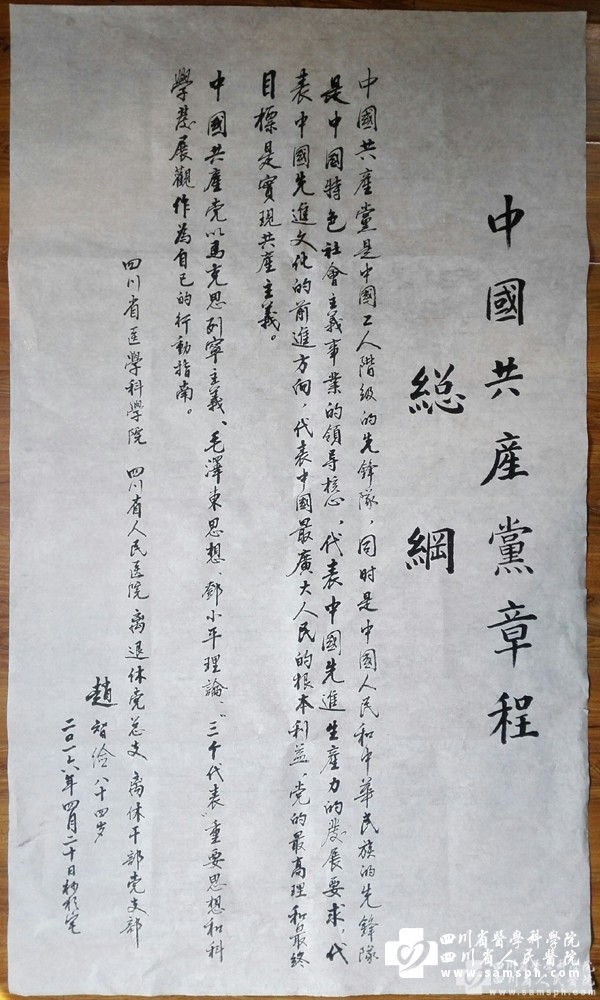 中國共產黨章程
總綱
中國共產黨是中國工人階級的先鋒隊，同时是中國人民和中華民族的先鋒隊
是中國特色社會主義事業的領导核心，代表中國先進生產力的發展要求，代
表中國先進文化的前進方向，代表中國最廣大人民的根本利益，党的最高理和最終
目標是實現共產主義。
中國共產党以馬克思列寧主義、毛澤東思想、鄧小平理論、“三个代表”重要思想和科
學發展觀作為自己的行動指南。
四川省医學科學院 四川省人民医院 离退休党总支 离休干部党支部
趙智 八十四岁
二〇一六年四月二十日抄於宅
四川省醫學科學院
四川省人民醫院
www.samsph.com